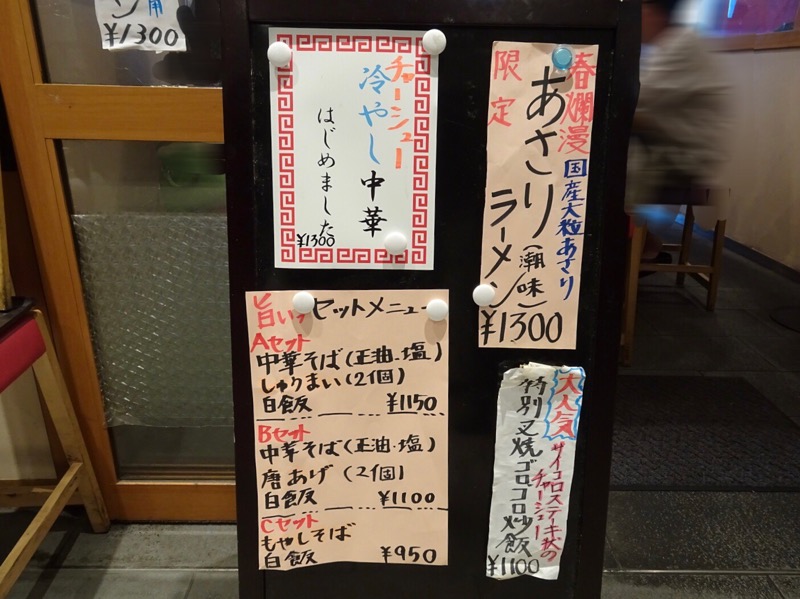 ¥1300
チャーシュー
冷やし中華
はじめました
¥1300
春爛漫
限定
国産大粒あさり
あさり(潮味)
ラーメン
¥1300
旨い セットメニュー
Aセット
中華そば(正油・塩)
しゅうまい(2個)
白飯 ¥1150
Bセット
中華そば(正油・塩)
唐あげ(2個)
白飯 ¥1100
Cセット
もやしそば
白飯 ¥950
大人気
サイコロステーキ状の
チャーシュー
特別叉焼ゴロゴロ炒飯
¥1100